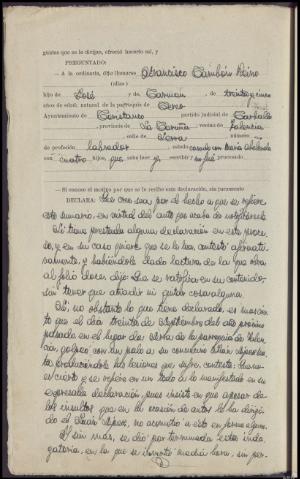 guientes que se le dirijan, ofreció hacerlo así, y
PREGUNTADO:
— A la ordinaria, dijo llamarse Francisco Cambón Piñeiro
(alias)
hijo de José y de Carmen de treinta y cinco
años de edad, natural de la parroquia de Cereo
Ayuntamiento de Coristanco partido judicial de Carballo
, provincia de La Coruña vecino de Valencia
calle de Verra
de profesión labrador estado casado con María
con cuatro hijos, que sabe leer y escribir y no fué procesado
— Si conoce el motivo por que se le recibe esta declaración, sin juramento
DECLARA: Que cree sea por el hecho a que se refiere
este sumario, en virtud del auto que acaba de notificársele
Si tiene prestada alguna declaración en este proce-
so, y en su caso quiere que se le lea, contesta afirmati-
vamente, y habiéndole dado lectura de la que obra
al folio doce, dijo: Que se ratifica en su contenido
sin tener que añadir ni quitar cosa alguna
Si, no obstante lo que tiene declarado, es más cier-
to que el día treinta de septiembre del año próximo
pasado en el lugar de Verra de la parroquia de Valen-
cia, golpeó con un palo a su convecino
produciéndole las lesiones que sufre, contesta: Que no
es cierto y se refiere en un todo a lo manifestado en su
expresada declaración, pues insiste en que apesar de
los insultos que en la ocasión de autos le ha dirigi-
do el, no acometió a este en forma alguna.
Y sin más, se dió por terminada esta inda-
gatoria, en la que se invirtió media hora, sin per-